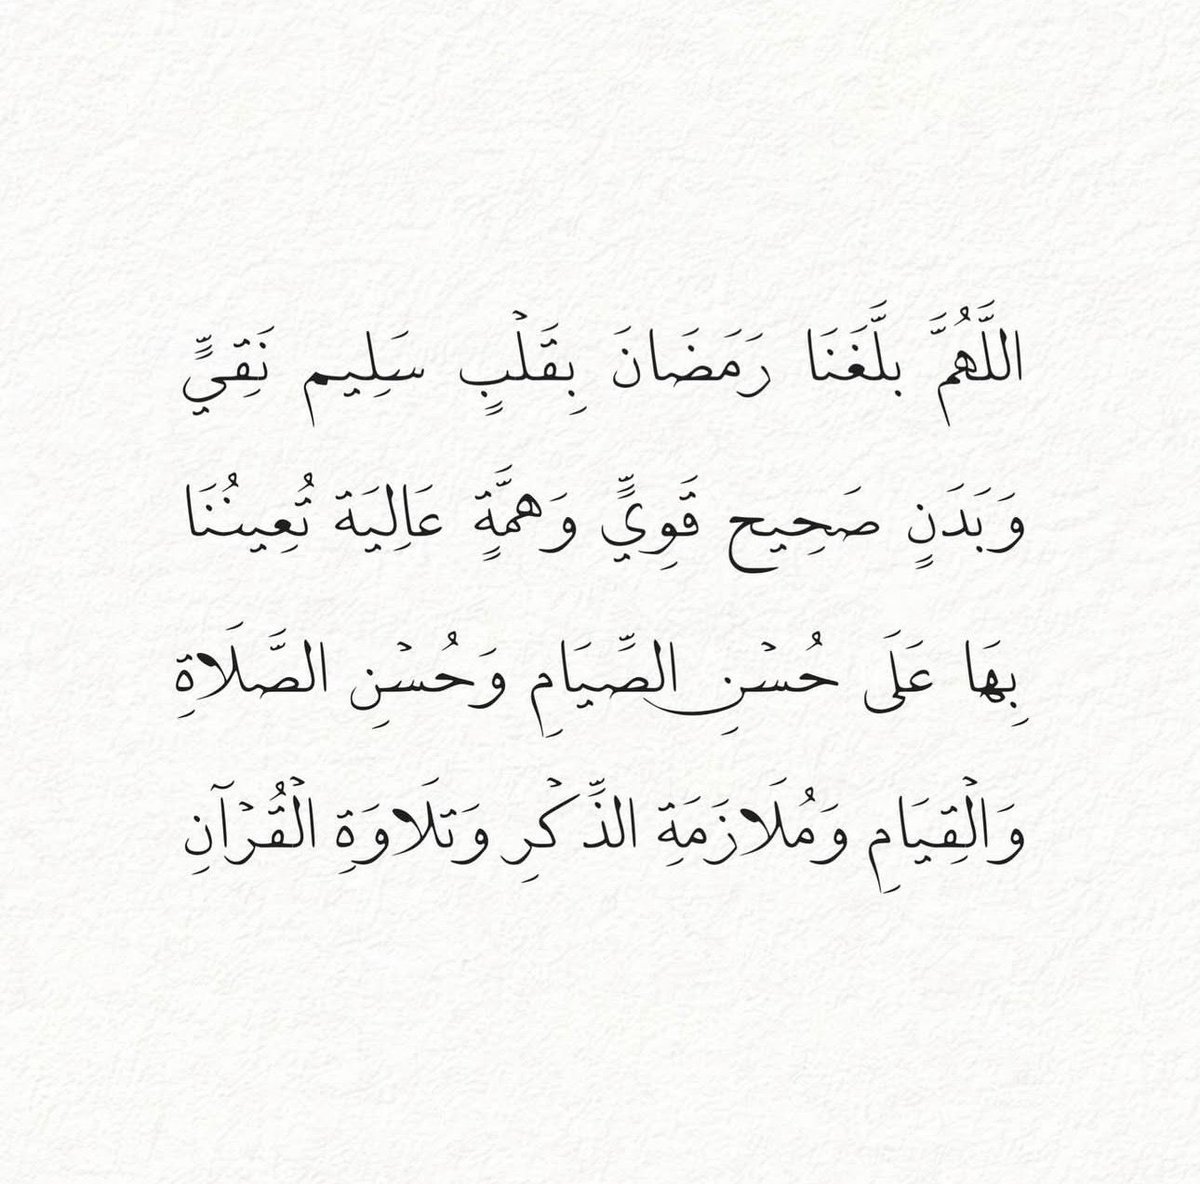 اللَّهُمَّ بلَّغَنَا رَمَضَانَ بِقَلْبٍ سَلِيم نَقِيٍّ
وَبَدَنٍ صَحِيح قَوِيٍّ وَهمَّةٍ عَالِيَة تُعِينُنَا
بِهَا عَلَى حُسْنِ الصِّيَامِ وَحُسْنِ الصَّلَاةِ
وَالْقِيَامِ وَمُلَازَمَةِ الذِّكْرِ وَتلَاوَةِ الْقُرْآنِ